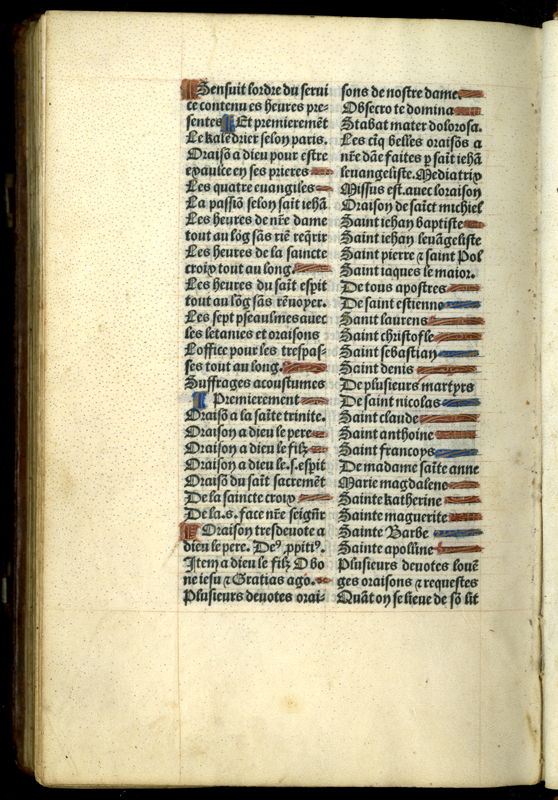 Sensuit lordre du serui
ce contenu es heures pre-
sentes Et premieremēt
Le kalēdrier selon paris.
Oraisō a dieu pour estre
exaulce en ses prieres
Les quatre euangiles
La passiō selon sait iehā
Les heures de nr̄e dame
tout au lōg sās riē reqrir
Les heures de la saincte
croix tout au long.
Les heures du sait espit
tout au lōg sās rēuoyer.
Les sept pseaulmes auec
les letanies et oraisons
Loffice pour les trespas-
ses tout au long.
Suffrages acoustumes
Premierement
Oraisō a la saīte trinite.
Oraison a dieu le pere
Oraison a dieu le filz
Oraison a dieu le .s. espit
Oraisō du sait sacremēt
De la saincte croix
De la .s. face nr̄e seigñr
Oraison tresdeuote a
dieu le pere. Deꝰ ꝓpitiꝰ.
Item a dieu le filz O bo
ne iesu ⁊ Gratias ago.
Plusieurs deuotes orai-
sons de nostre dame.
Obsecro te domina
Stabat mater dolorosa.
Les cīq belles oraisōs a
nr̄e dāe faites p sait iehā
leuangeliste. Mediatrix
Missus est. auec loraison
Oraison de saīct michiel
Saint iehan baptiste
Saint iehan leuāgeliste
Saint pierre ⁊ saint Pol
Saint iaques le maior.
De tous apostres
De saint estienne
Sanit laurens
Saint christofle
Saint sebastian
Saint denis
De plusieurs martyrs
De saint nicolas
Saint claude
Saint anthoine
Saint francoys
De madame saīte anne
Marie magdalene
Sainte katherine
Sainte maguerite
Sainte Barbe
Sainte apolline
Plusieurs deuotes louē
ges oraisons ⁊ requestes
Quāt on se lieue de sō lit